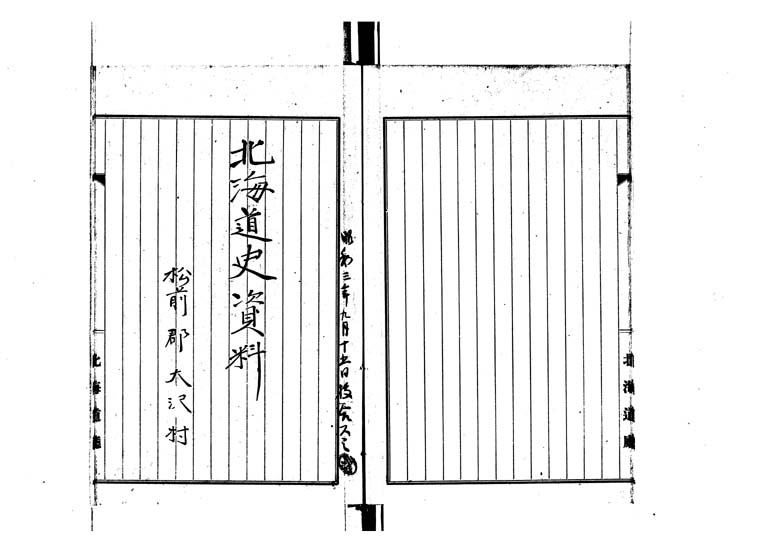 北海道廳
昭和三年九月十五日校合スミ
北海道史資料
松前郡大沢村
北海道廳